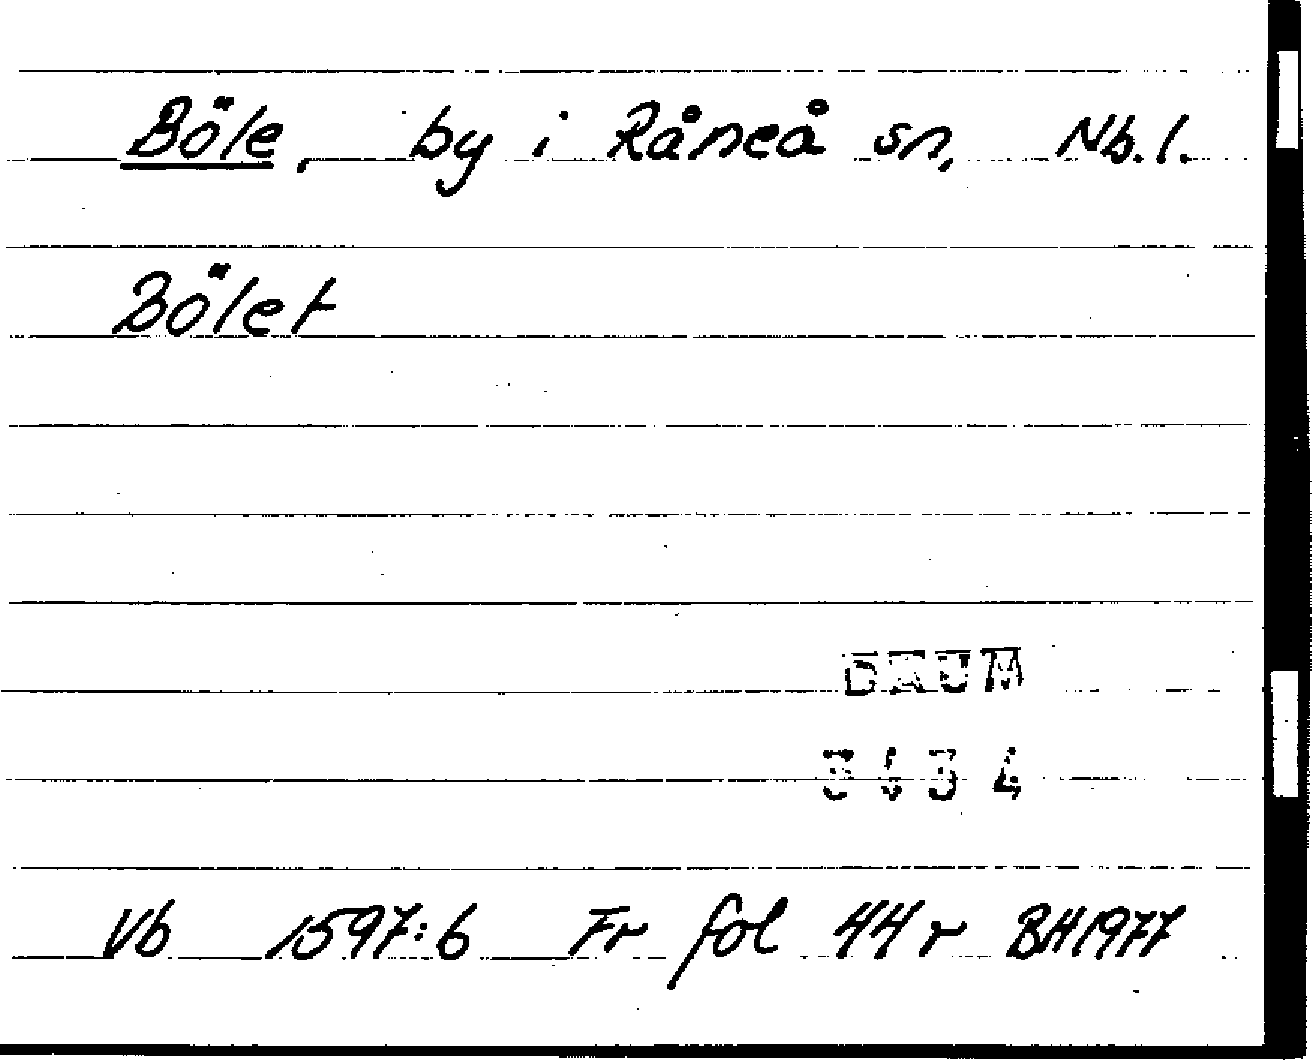 Böle, by i Råneå sn, Nb. l.
Bölet
DAUM
Vb 1597:6 Fr fol 44 r BH 1977